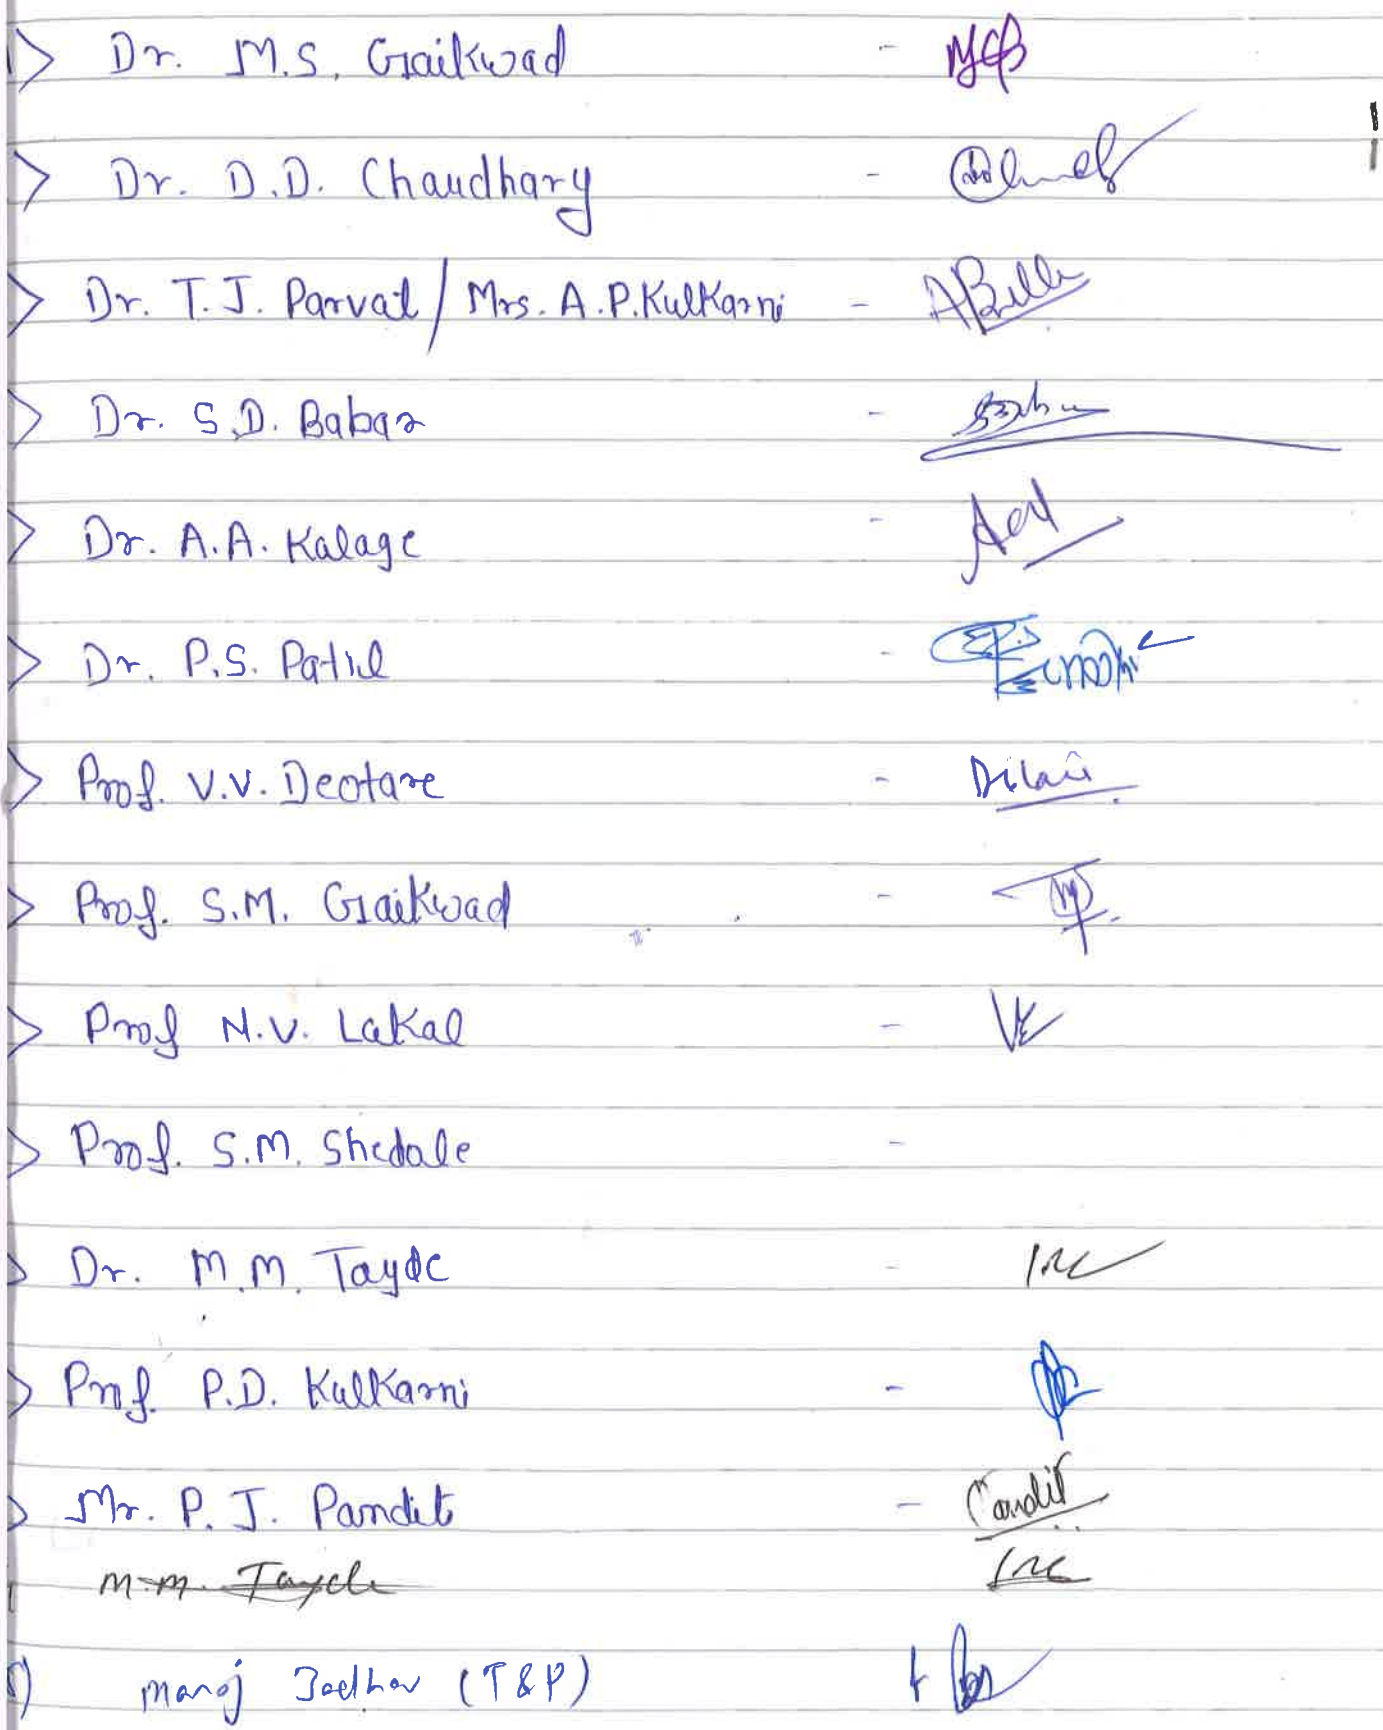 1> Dr. M.S. Gaikwad -
> Dr. D.D. Chaudhary -
> Dr. T.J. Parvat / Mrs. A.P. Kulkarni -
> Dr. S.D. Babar -
> Dr. A.A. Kalage -
> Dr. P.S. Patil -
> Prof. V.V. Deotare -
> Prof. S.M. Gaikwad -
> Prof N.V. Lakal -
> Prof. S.M. Shedale -
> Dr. M.M. Tayde -
> Prof. P.D. Kulkarni -
> Mr. P.J. Pandit - Pandit
M.M. Tayde
) Manoj Jadhav (T&P)